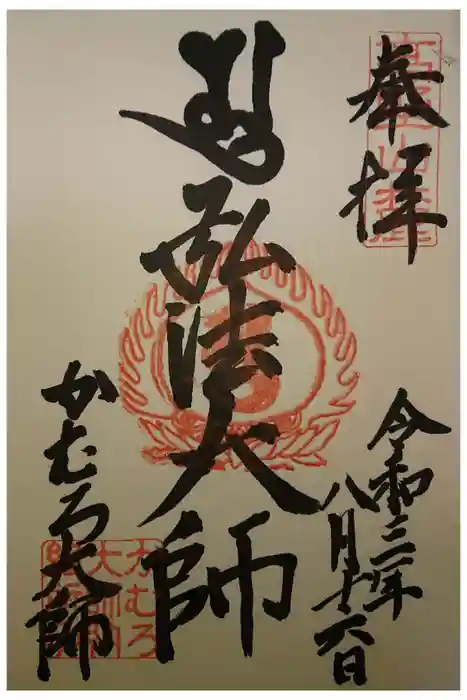 高野山麓
奉拝
令和三年
八月十六日
弘法大師
かむろ大師
かむろ
大師